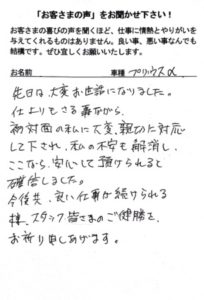 「お客さまの声」をお聞かせ下さい!
お客さまの喜びの声を聞くほど、仕事に情熱とやりがいを
与えてくれるものはありません。良い事、悪い事なんでも
結構です。ぜひ宜しくお願いいたします。
お名前 車種 プリウスα
先日は大変お世話になりました。
仕上りもさる事ながら、
初対面の私に大変、親切に対応
して下され、私の不安も解消し、
ここなら、安心して預けられると
確信しました。
今後共、良い仕事が続けられる
様、スタッフ皆さまのご健勝を、
お祈り申しあげます。